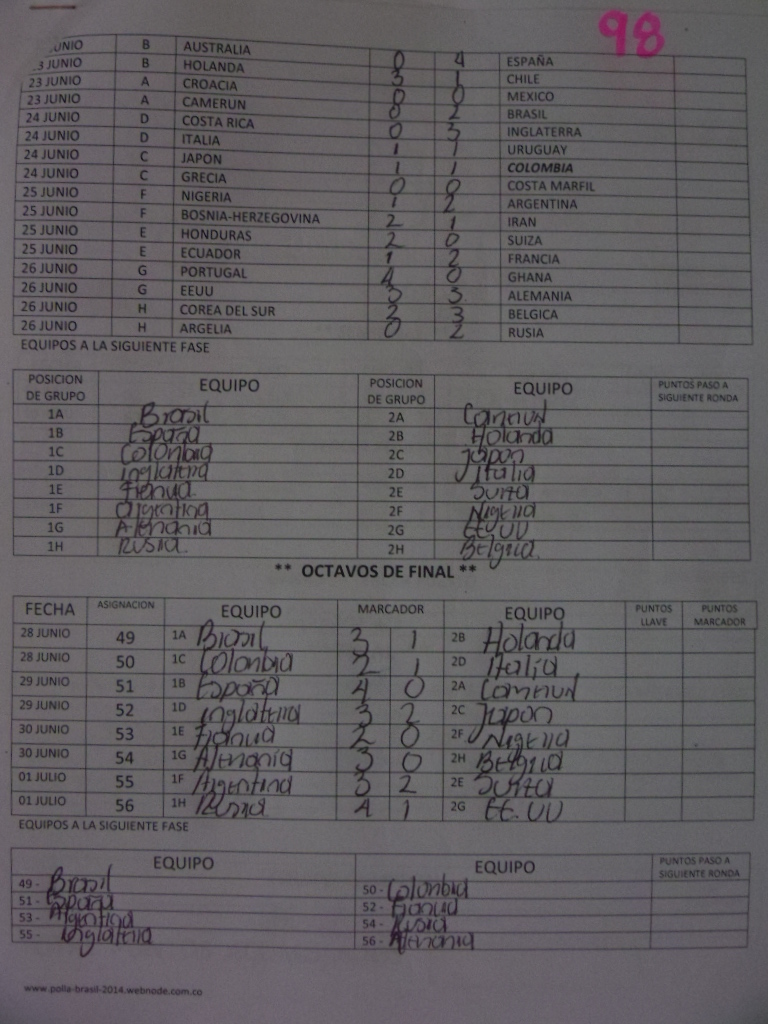 98
UNIO B AUSTRALIA 0 4 ESPAÑA
3 JUNIO B HOLANDA 3 1 CHILE
23 JUNIO A CROACIA 0 0 MEXICO
23 JUNIO A CAMERUN 0 2 BRASIL
24 JUNIO D COSTA RICA 0 3 INGLATERRA
24 JUNIO D ITALIA 1 1 URUGUAY
24 JUNIO C JAPON 1 1 COLOMBIA
24 JUNIO C GRECIA 0 0 COSTA MARFIL
25 JUNIO F NIGERIA 1 2 ARGENTINA
25 JUNIO F BOSNIA-HERZEGOVINA 2 1 IRAN
25 JUNIO E HONDURAS 2 0 SUIZA
25 JUNIO E ECUADOR 1 2 FRANCIA
26 JUNIO G PORTUGAL 4 0 GHANA
26 JUNIO G EEUU 3 3 ALEMANIA
26 JUNIO H COREA DEL SUR 3 BELGICA
26 JUNIO H ARGELIA 0 2 RUSIA
EQUIPOS A LA SIGUIENTE FASE
POSICION DE GRUPO EQUIPO POSICION DE GRUPO EQUIPO PUNTOS PASO A SIGUIENTE RONDA
1A Brasil 2A Camerun
1B España 2B Holanda
1C Colombia 2C Japon
1D inglaterra 2D Italia
1E Francia 2E Suiza
1F argentina 2F Nigeria
1G Alemania 2G EE.UU
1H Rusia 2H Belgica
** OCTAVOS DE FINAL **
FECHA ASIGNACION EQUIPO MARCADOR EQUIPO PUNTOS LLAVE PUNTOS MARCADOR
28 JUNIO 49 1A Brasil 3 1 2B Holanda
28 JUNIO 50 1C Colombia 2 1 2D Italia
29 JUNIO 51 1B España 4 0 2A Camerun
29 JUNIO 52 1D inglaterra 3 2 2C Japon
30 JUNIO 53 1E Francia 2 0 2F Nigeria
30 JUNIO 54 1G Alemania 3 0 2H Belgica
01 JULIO 55 1F Argentina 3 2 2E Suiza
01 JULIO 56 1H Rusia 4 1 2G EE.UU
EQUIPOS A LA SIGUIENTE FASE
EQUIPO EQUIPO PUNTOS PASO A SIGUIENTE RONDA
49 - Brasil 50 - Colombia
51 - España 52 - Francia
53 - Argentina 54 - Rusia
55 - Inglaterra 56 - Alemania
www.polla-brasil-2014.webnode.com.co